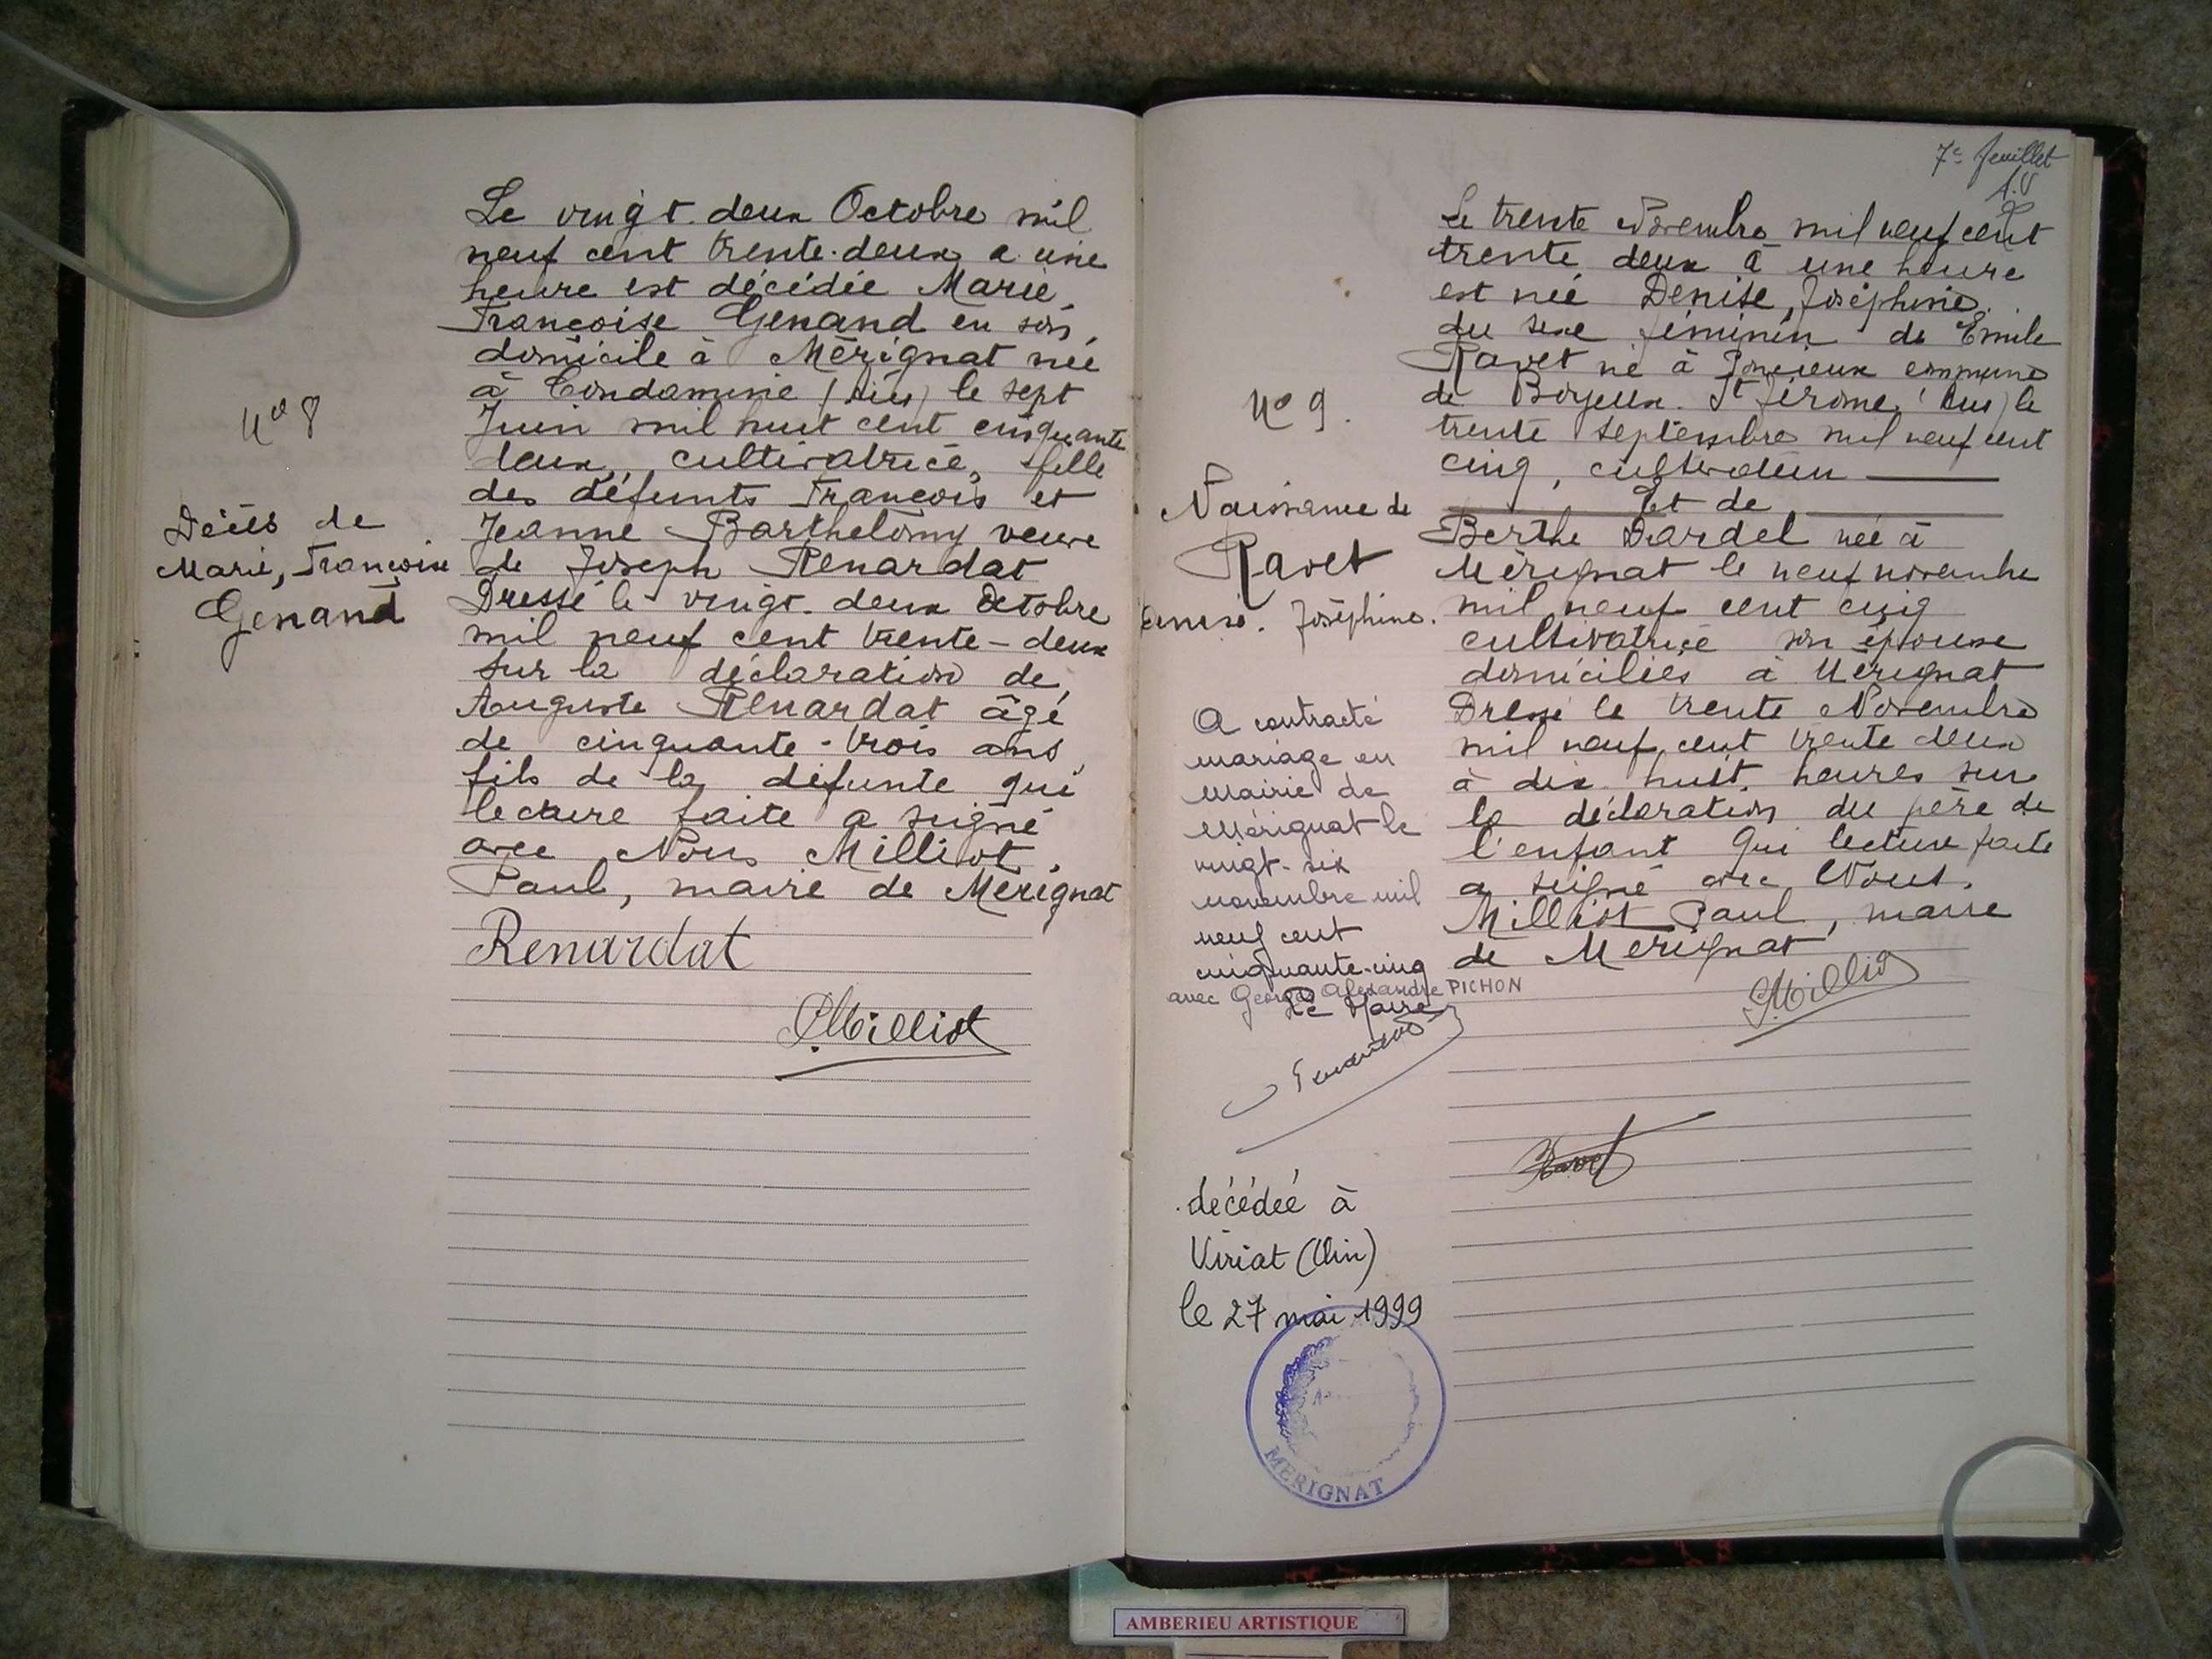 Le vingt-deux Octobre mil
neuf cent trente-deux a une
heure est décédée Marie,
Françoise Genand en son
domicile à Mérignat née
à Condamine (Ain) le sept
Juin mil huit cent cinquante
deux, cultivatrice, fille
des défunts François et
Jeanne Barthelomy veuve
de Joseph Renardat
Dressé le vingt-deux Octobre
mil neuf cent trente-deux
sur la déclaration de
Auguste Renardat âgé
de cinquante-trois ans
fils de la défunte qui
lecture faite a signé
avec Nous Milliot
Paul, maire de Mérignat
Renardat
P. Milliot
N° 8
Décès de
Marie, Françoise
Genand
7e feuillet
Le trente Novembre mil neuf cent
trente deux à une heure
est née Denise, Joséphine
du sexe féminin de Emile
Ravet né à commune
de Boyeux-St Jérome (Ain) le
trente septembre mil neuf cent
cinq, cultivateur
Et de
Berthe Dardel née à
Mérignat le neuf novembre
mil neuf cent cinq
cultivatrice son épouse
domiciliés à Mérignat
Dressé le trente Novembre
mil neuf cent trente deux
à dix huit heures sur
la déclaration du père de
l'enfant qui lecture faite
a signé avec Nous.
Milliot Paul, maire
de Mérignat
P. Milliot
Ravet
N° 9.
Naissance de
Ravet
Denise. Joséphine.
A contracté
mariage en
mairie de
Mérignat le
vingt-six
novembre mil
neuf cent
cinquante-cinq
avec Georges Alexandre PICHON
Le Maire
décédée à
Viriat (Ain)
le 27 mai 1999
MERIGNAT
AMBERIEU ARTISTIQUE